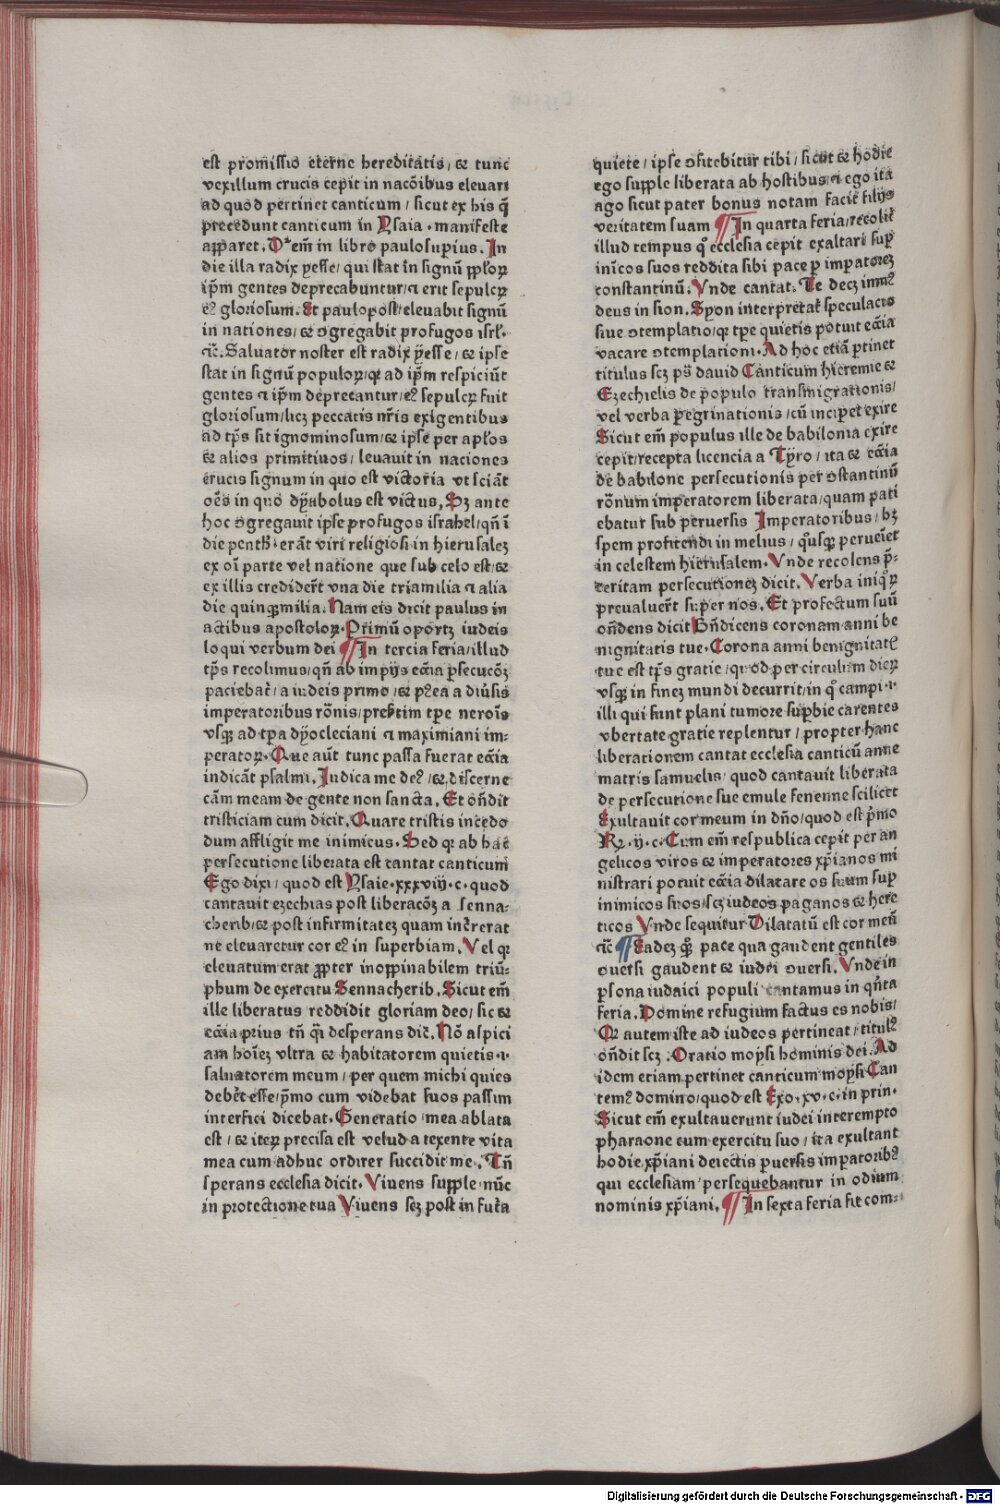 est promissio eterne hereditatis / et tunc
vexillum crucis cepit in nacōibus eleuari
ad quod pertinet canticum / sicut ex his q̄
precedunt canticum in Ysaia · manifeste
apparet. em̄ in libro paulosuperius. In
die illa radix yesse / qui stat in signū pploꝝ
ip̄m gentes deprecabuntur / ⁊ erit sepulcꝝ
eꝰ gloriosum. Et paulopost / eleuabit signū
in nationes / et ↄgregabit profugos isrl̄·
⁊c̄. Saluator noster est radix yesse / et ipse
stat in signū populoꝝ / qꝛ ad ip̄m respiciūt
gentes ⁊ ip̄m deprecantur / eꝰ sepulcꝝ fuit
gloriosum / licꝫ peccatis nr̄is exigentibus
ad tp̄s sit ignominosum / et ipse per apl̄os
et alios primitiuos / leuauit in naciones
crucis signum in quo est victoria vt sciāt
oēs in quo dyabolus est victus. Sꝫ ante
hoc ↄgregauit ipse profugos israhel / qn̄ ī
die penth̄ · erāt viri religiosi in hierusaleꝫ
ex oī parte vel natione que sub celo est / et
ex illis credider̄t vna die triamilia ⁊ alia
die quinqꝫmilia. Nam eis dicit paulus in
actibus apostoloꝝ · Primū oportꝫ iudeis
loqui verbum dei ¶ In tercia feria / illud
tp̄s recolimus / qn̄ ab impijs ecc̄ia ꝑsecucōꝫ
paciebat̄ / a iudeis primo / et pꝰea a diūsis
imperatoribus rōnis / presertim tꝑe neroīs
vsqꝫ ad tꝑa dyocleciani ⁊ maximiani im⸗
peratoꝝ · Que aūt tunc passa fuerat ecc̄ia
indicāt psalmi. Iudica me deꝰ / et discerne
cām meam de gente non sancta. Et ōn̄dit
tristiciam cum dicit. Quare tristis incedo
dum affligit me inimicus. Sed qꝛ ab hac
persecutione liberata est cantat canticum
Ego dixi / quod est Ysaie · xxxviij · c · quod
cantauit ezechias post liberacōꝫ a senna⸗
cherib / et post infirmitateꝫ quam incꝰrerat
ne eleuaretur cor eꝰ in superbiam. Vel qꝛ
eleuatum erat ꝓpter inoppinabilem triū⸗
phum de exercitu Sennacherib. Sicut em̄
ille liberatus reddidit gloriam deo / sic et
ecc̄ia prius tn̄ q̄i desperans dic̄. Nō aspici
am hoīeꝫ vltra et habitatorem quietis · ·
saluatorem meum / per quem michi quies
debet esse / p̄mo cum videbat suos passim
interfici dicebat. Generatio mea ablata
est / et iteꝝ precisa est velud a texente vita
mea cum adhuc ordirer succidit me. Tn̄
sperans ecclesia dicit. Viuens supple nūc
in protectione tua Viuens scꝫ post in fut̄a
quiete / ipse ↄfitebitur tibi / sicut et hodie
ego supple liberata ab hostibus ⁊ ego ita
ago sicut pater bonus notam facit filijs
veritatem suam ¶ In quarta feria / recolit̄
illud tempus qͦ ecclesia cepit exaltari suꝑ
inīcos suos reddita sibi pace ꝑ imꝑatoreꝫ
constantinū. Vnde cantat. Te decꝫ imnꝰ
deus in sion. Syon interpretat̄ speculacio
siue ↄtemplatio / qꝛ tꝑe quietis potuit ecc̄ia
vacare ↄtemplationi. Ad hoc etiā ꝑtinet
titulus scꝫ pꝰ dauid Canticum hieremie et
Ezechielis de populo transmigrationis /
vel verba peregrinationis / cū inciperet exire
Sicut em̄ populus ille de babilonia exire
cepit / recepta licencia a Tyro / ita et ecc̄ia
de babilone persecutionis per ↄstantinū
rōnum imperatorem liberata / quam pati
ebatur sub peruersis Imperatoribus / hꝫ
spem proficiendi in melius / qͦusqꝫ perueīet
in celestem hierusalem. Vnde recolens p̄⸗
teritam persecutioneꝫ dicit. Verba iniqͦꝝ
preualuer̄t super nos. Et profectum suū
on̄dens dicit Bn̄dicens coronam anni be
nignitatis tue. Corona anni benignitatꝭ
tue est tp̄s gratie / quod per circulum dieꝝ
vsqꝫ in fineꝫ mundi decurrit / in qͦ campi · ·
illi qui sunt plani tumore suꝑbie carentes
vbertate gratie replentur / propter hanc
liberationem cantat ecclesia canticū anne
matris samuelis / quod cantauit liberata
de persecutione sue emule fenenne scilicet
Exultauit cor meum in dn̄o / quod est p̄mo
Rꝝ · ij · c · Cum em̄ respublica cepit per an
gelicos viros et imperatores xp̄ianos mi
nistrari potuit ecc̄ia dilatare os suum suꝑ
inimicos suos / scꝫ iudeos paganos et here
ticos Vnde sequitur Dilatatū est cor meū
⁊c̄ ¶ Eadeꝫ qꝫ pace qua gaudent gentiles
ↄuersi gaudent et iudei ↄuersi. Vnde in
ꝑsona iudaici populi cantamus in qn̄ta
feria. Domine refugium factus es nobis /
Qꝛ autem iste ad iudeos pertineat / titulꝰ
on̄dit scꝫ. Oratio moysi hominis dei. Ad
idem etiam pertinet canticum moysi Can
temꝰ domino / quod est Exo · xv · c · in prin ·
Sicut em̄ exultauerunt iudei interempto
pharaone cum exercitu suo / ita exultant
hodie xp̄iani deiectis ꝑuersis imꝑatoribꝰ
qui ecclesiam persequebantur in odium
nominis xp̄iani. ¶ In sexta feria fit com⸗
Digitalisierung gefördert durch die Deutsche Forschungsgemeinschaft - DFG